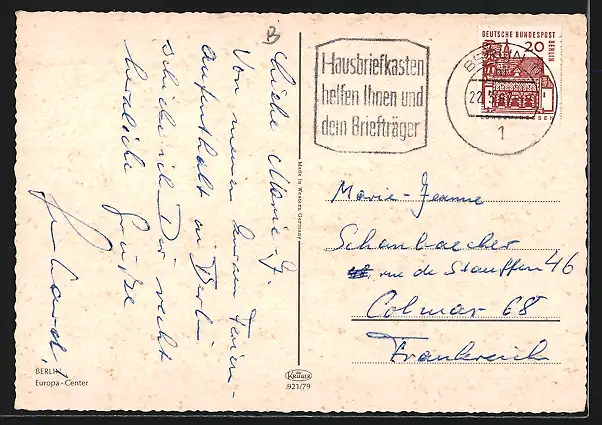 B
Liebe Marie-J.
Von meinem kurzen Ferien-
aufenthalt in Berlin
schicke ich Dir recht
herzliche Grüße
BERLIN
Europa-Center
Made in Western Germany
KRÜGER
921/79
Hausbriefkasten
helfen Ihnen und
dem Briefträger
BERLIN
22.
1
DEUTSCHE BUNDESPOST BERLIN
20
Marie-Jeanne
Schanbacher
rue de Stauffen 46
Colmar 68
Frankreich